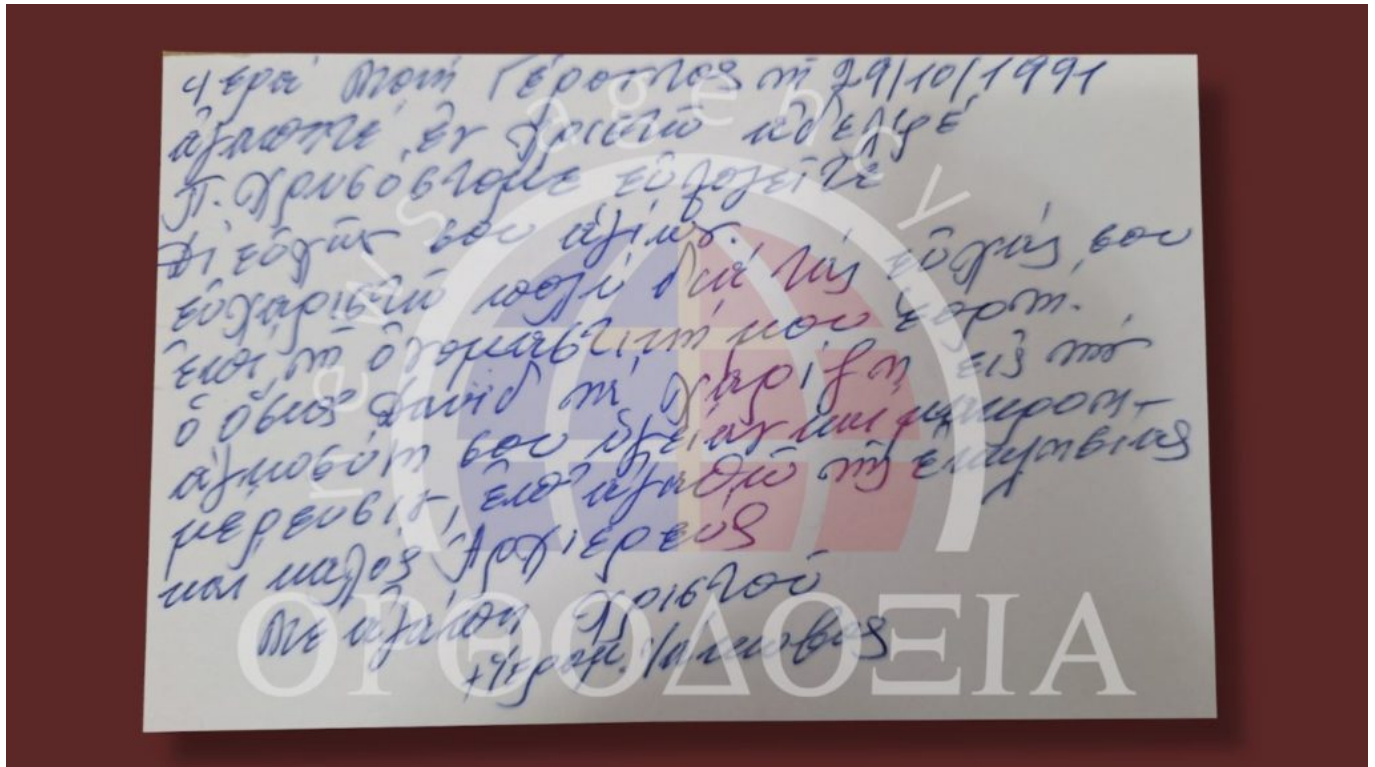 Ἱερά Μονή Γέροντος τῇ 29/10/1991
ἀγαπητέ ἐν Χριστῷ ἀδελφέ
π. Χρυσόστομε εὐλογεῖτε
Δι εὐχῶν σου ἁγίων.
εὐχαριστῶ πολύ διά τάς εὐχάς σου
ἐπί τῇ ὀνομαστικῇ μου ἑορτῇ.
ὁ ὅσιος Δαυίδ νά χαρίζῃ εἰς τήν
ἁγιοσύνη σου ὑγείαν καί μακροη-
μέρευσιν, ἐπ' ἀγαθῷ τῆς ἐκκλησίας
και καλός Ἀρχιερεύς
Μέ ἀγάπη Χριστοῦ
+ Ἱερομ. Ἰάκωβος
news agency
ΟΡΘΟΔΟΞΙΑ